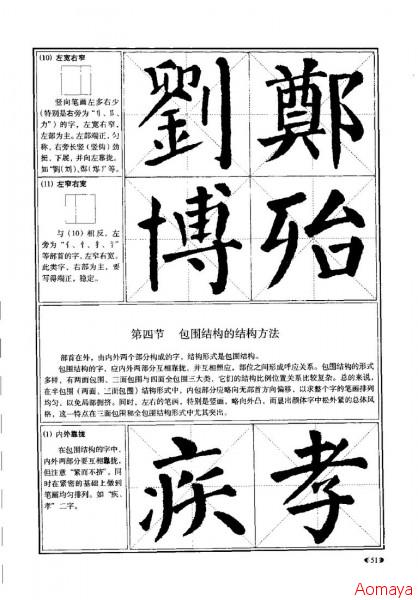 (10) 左宽右窄
竖向笔画左多右少
(特别是右旁为“刂、阝、
力”) 的字，左宽右窄，
左部为主。左部端正、匀
称，右旁长竖 (竖钩) 劲
挺、下展，并向左靠拢。
如“劉(刘)、鄭(郑)”等。
劉 鄭
(11) 左窄右宽
与 (10) 相反，左
等部首的字，左窄右宽。
此类字，右部为主，要
写得端正，稳定。
博 殆
第四节 包围结构的结构方法
部首在外，由内外两个部分构成的字，结构形式是包围结构。
包围结构的字，应内外两部分互相靠拢，并互相照应，部位之间形成呼应关系。包围结构的形式
多样，有两面包围、三面包围与四面全包围三大类，它们的结构比例位置关系比较复杂。总的来说，
在半包围 (两面、三面包围) 结构形式中，内包部分应略向无部首方向偏移，以求整个字的笔画排列
均匀，以免局部拥挤。同时，左右的笔画，特别是竖画，略向外凸，而显出颜体字中松外紧的总体风
格，这一特点在三面包围和全包围结构形式中尤其突出。
(1) 内外靠拢
在包围结构的字中，
内外两部分要互相靠拢，
但注意“紧而不挤”。同
时在紧密的基础上做到
笔画均匀排列。如“疾、
孝”二字。
疾 孝
51
Aomaya